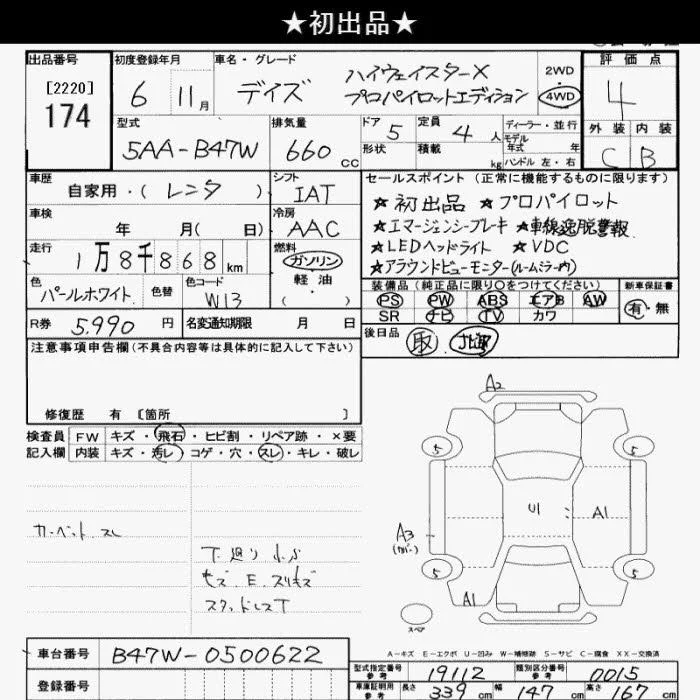 ★初出品★
出品番号 初度登録年月 車名・グレード 評価点
[2220]
174
6 11月 デイズ ハイウェイスターX
プロパイロットエディション
2WD
4WD
4
型式 排気量 ドア 5 定員 4人 ディーラー・並行
モデル年式 年
外装 内装
5AA-B47W 660cc 形状 積載 kg ハンドル 左・右 C B
車歴 シフト セールスポイント (正常に機能するものに限ります)
自家用・(レンタ) IAT
★初出品 ★プロパイロット
車検 冷房
年 月( 日) AAC
★エマージェンシーブレキ ★車線逸脱警報
走行 燃料
1万8千868km ガソリン
★LEDヘッドライト ★VDC
★アラウンドビューモニター(ルームミラー内)
色 色替 色コード 軽油
パールホワイト W13 ( )
装備品 (純正品に限り〇をつけてください) 新車保証書
PS PW ABS エアB AW
SR ナビ TV カワ
有・無
R券 5,990円 名変通知期限 月 日
後日品 取
注意事項申告欄(不具合内容等は具体的に記入して下さい)
修復歴 有 [箇所 ]
検査員 FW キズ・飛石・ヒビ割・リペア跡・×要
記入欄 内装 キズ・汚レ・コゲ・穴・スレ・キレ・破レ
カーペット スレ
下廻り
A2
5 5
U1 A1
A3
(カバー)
5 5
A1
スペア
A-キズ E-エクボ U-凹み W-補修跡 S-サビ C-腐食 XX-交換済
車台番号 B47W-0500622
登録番号
型式指定番号 参考 19112 類別区分番号 参考 0015
車庫証明用 参考 長さ 339cm 幅 147cm 高さ 167cm